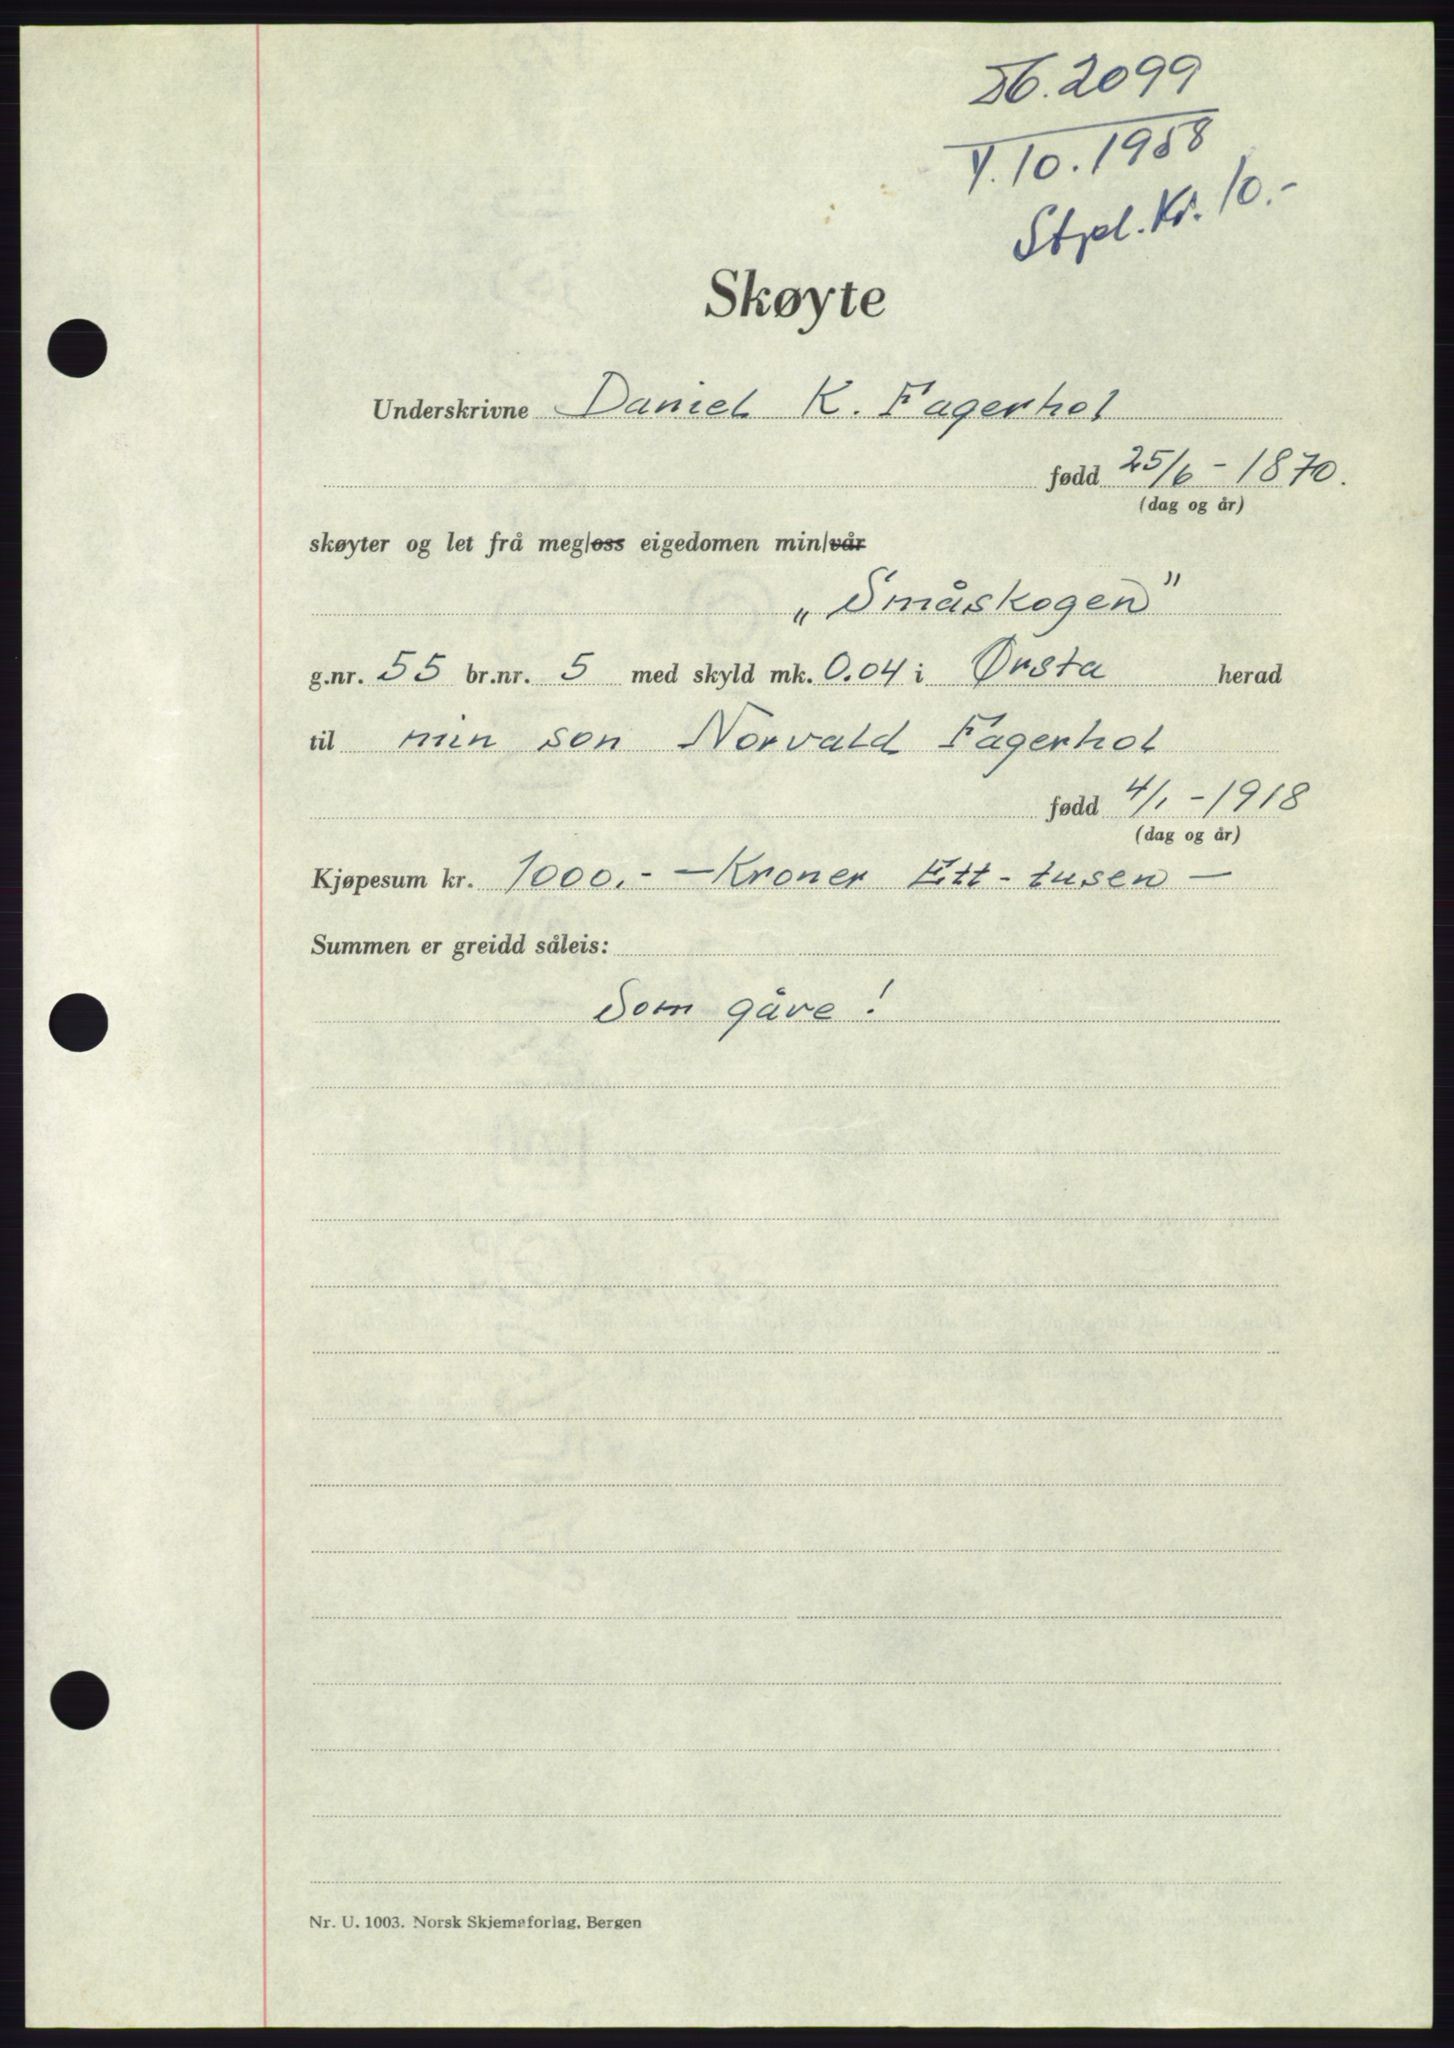 2099
10.1958
Stpl. Kr. 10.-
Skøyte
Underskrivne Daniel K. Fagerhol
fødd 25/6 - 1870.
(dag og år)
skøyter og let frå meg/oss eigedomen min/vår
„Småskogen"
g.nr. 55 br.nr. 5 med skyld mk. 0.04 i Ørsta herad
til min son Norvald Fagerhol
fødd 4/1 - 1918
(dag og år)
Kjøpesum kr. 1000.- — Kroner Ett - tusen —
Summen er greidd såleis:
Som gåve!
Nr. U. 1003. Norsk Skjemaforlag. Bergen